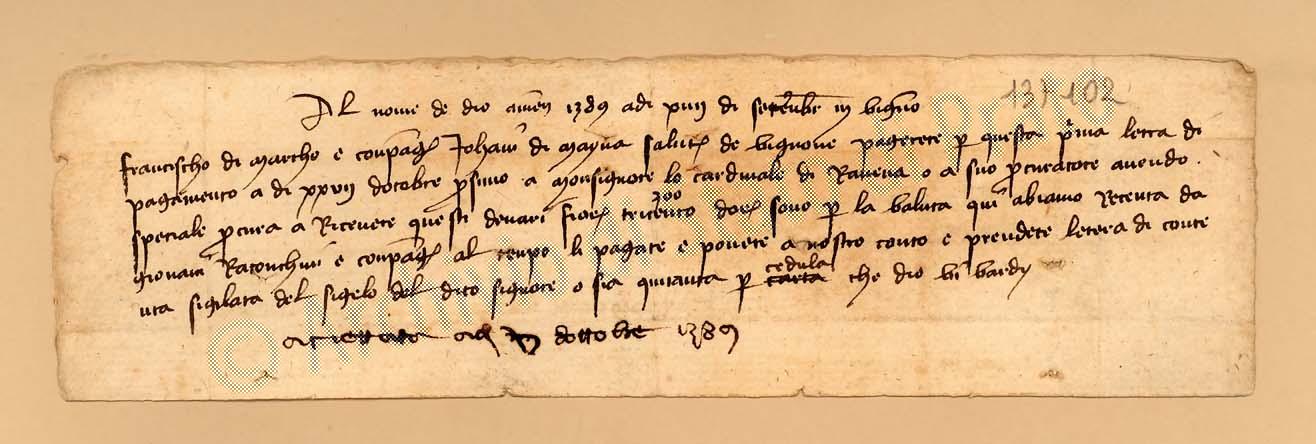 Al nome de dio amen 1389 adi xviii di setenbre in vignone
13+102
francischo di marcho e conpag Johani di mayna salute de vignone pagerete p questa prima letra di
pagamento a di xxvii dotobre prosimo a monsignore lo cardinale di Ravena o a suo procuratore avendo
speciale procura a Ricevere questi denari fiorj tricento dorj sono p la valuta qui abiamo Receuta da
300
giovani Ratonchini e conpag al tenpo li pagate e ponete a nostro conto e prendete letera di conte
nta sigilata del sigelo del dito signore o sia quitanta p carta che dio vi vardj
cedula
aciettata adj dottobre 1389